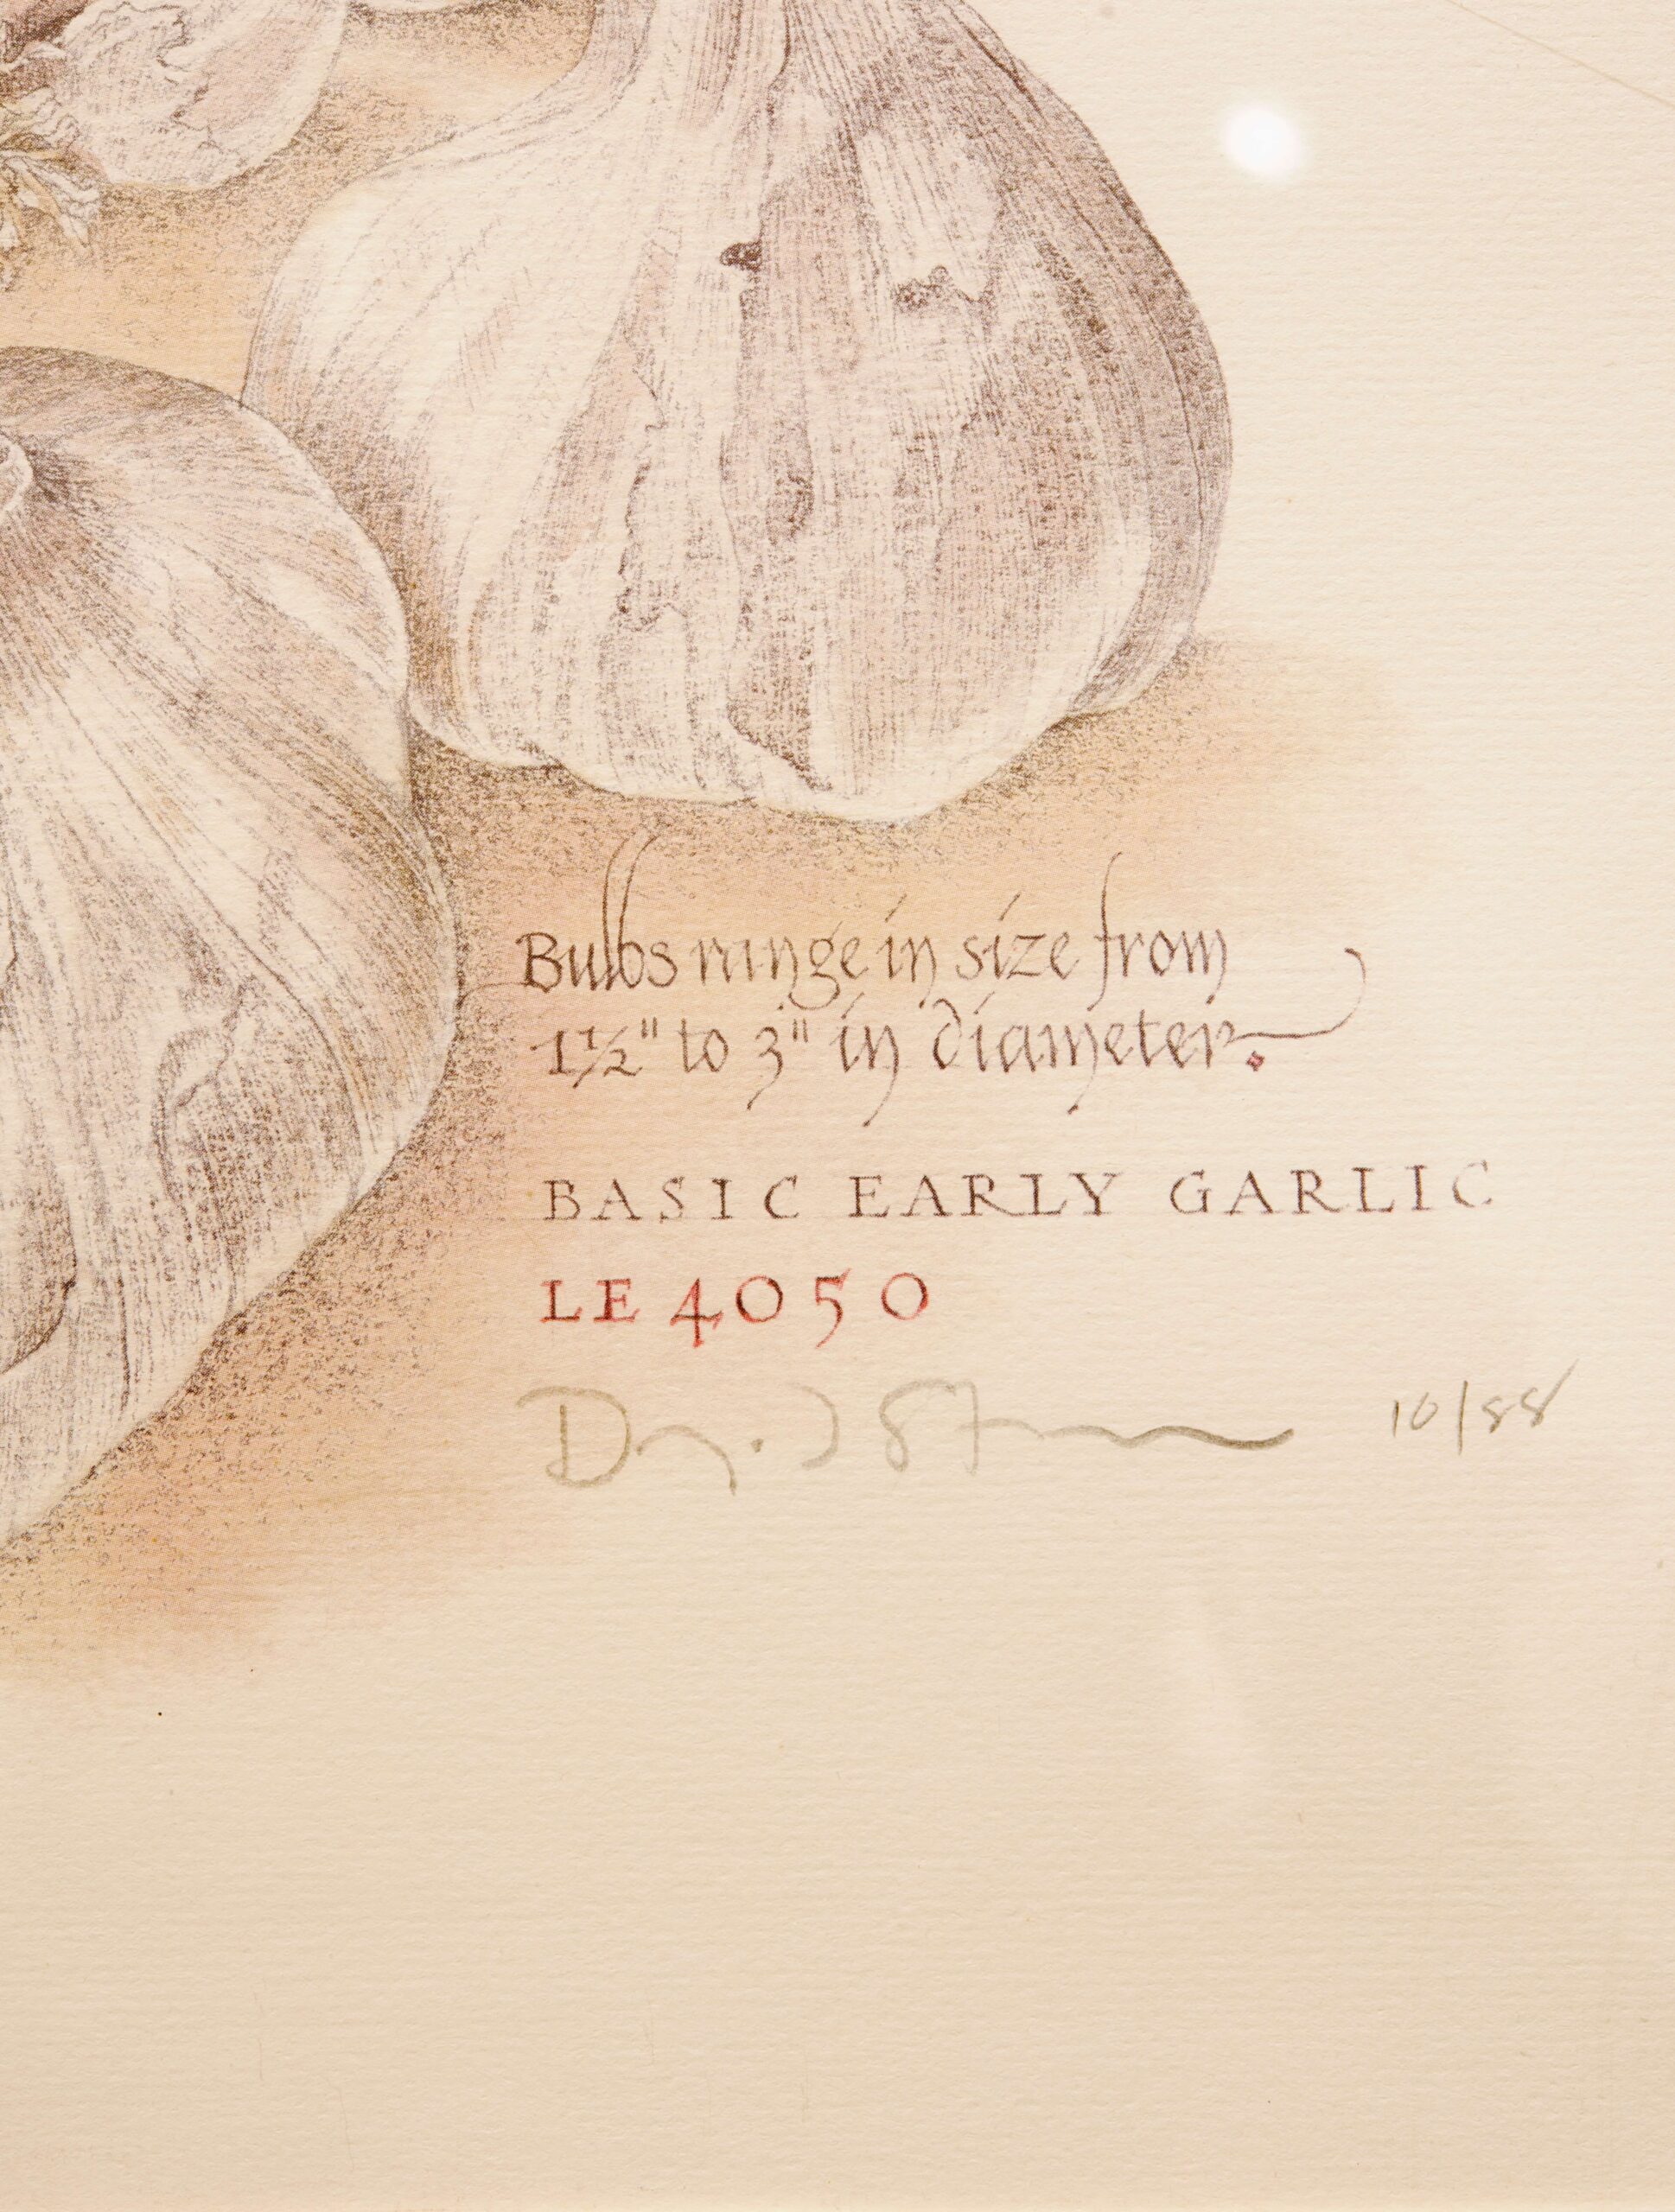 Bulbs range in size from
1½" to 3" in diameter.
BASIC EARLY GARLIC
LE 4050
10/88